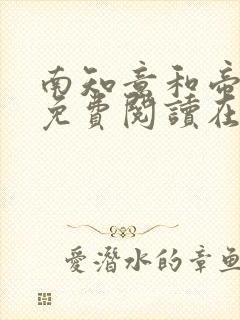 南知意和帝
免費閱讀在
愛潛水的章魚